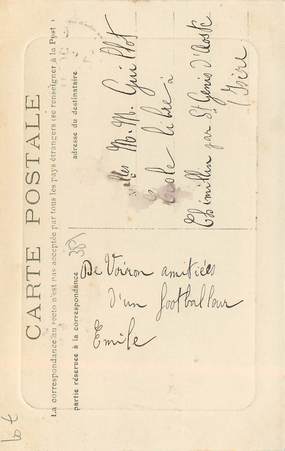 CARTE POSTALE
La correspondance au recto n'est pas acceptée par tous les pays étrangers (se renseigner à la Poste).
partie réservée à la correspondance
adresse du destinataire
De Voiron amitiées
d'un footballeur
Emile
M. M. Guillot
Ecole libre à
Chimilin par St Genis d'Aoste
Isère